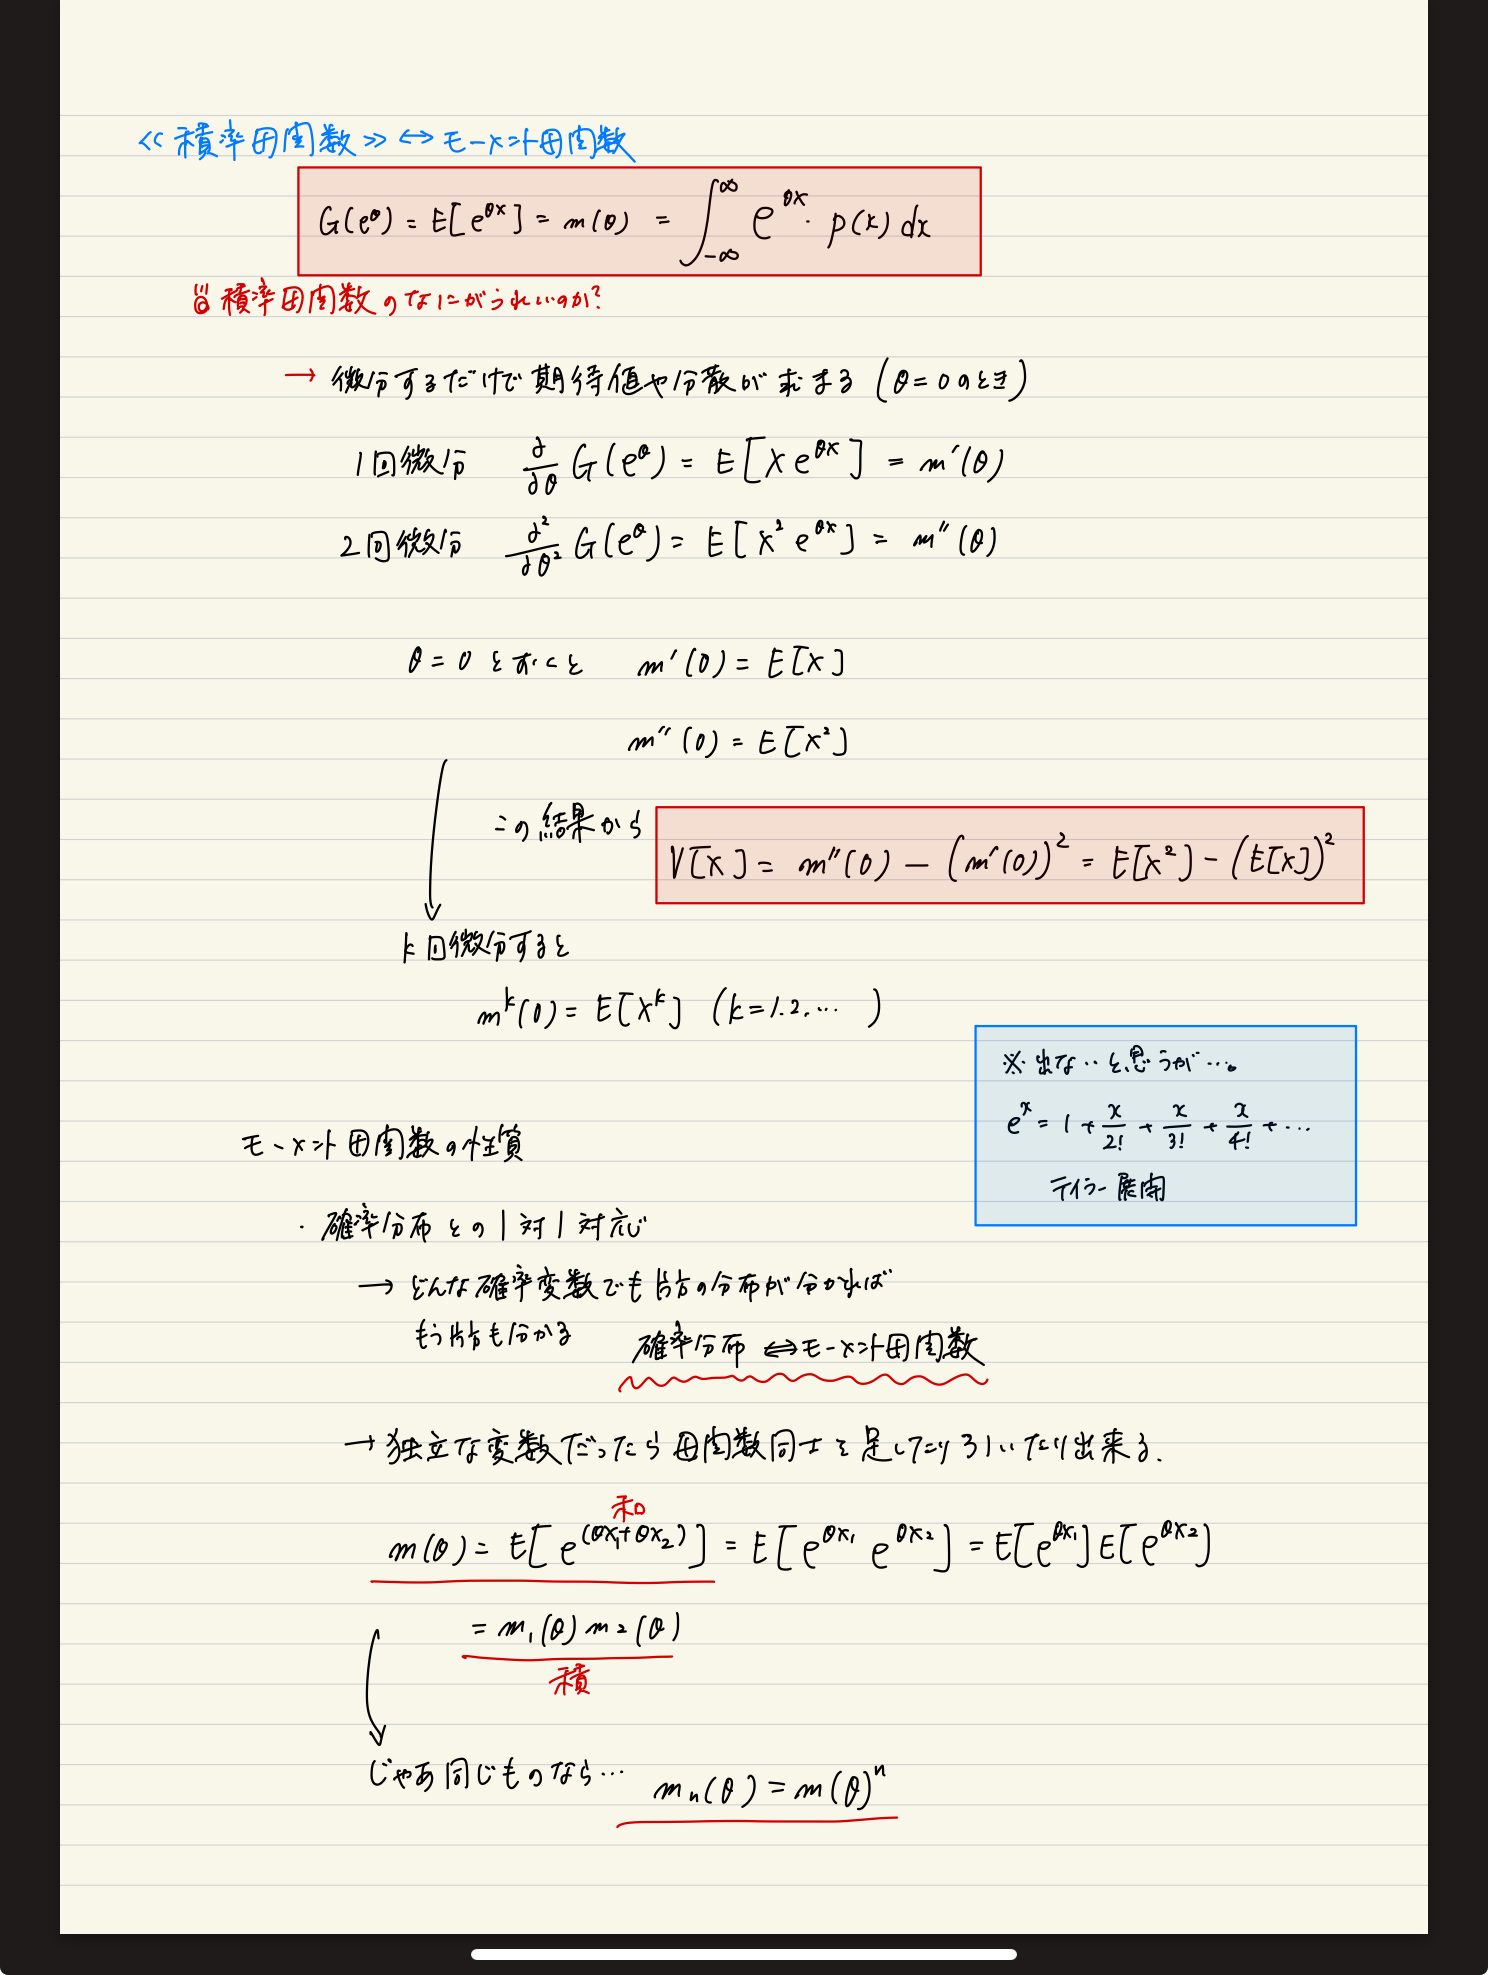 ≪積率母関数≫ ↔ モーメント母関数
G(e^θ) = E[e^{θx}] = m(θ) = ∫_{-∞}^{∞} e^{θx}・p(x) dx
積率母関数のなにがうれしいのか?
→ 微分するだけで期待値や分散が求まる (θ=0のとき)
1回微分 ∂/∂θ G(e^θ) = E[X e^{θx}] = m'(θ)
2回微分 ∂²/∂θ² G(e^θ) = E[X² e^{θx}] = m''(θ)
θ=0 とおくと m'(0) = E[X]
m''(0) = E[X²]
この結果から V[X] = m''(0) − (m'(0))² = E[X²] − (E[X])²
k回微分すると
m^k(0) = E[X^k] (k=1.2.… )
※ 出ないと思うが…。
e^x = 1 + x/2! + x/3! + x/4! + …
テイラー展開
モーメント母関数の性質
・確率分布との1対1対応
→ どんな確率変数でも片方の分布が分かれば
もう片方も分かる
確率分布 ⇔ モーメント母関数
→ 独立な変数だったら母関数同士を足したり引いたり出来る.
和
m(θ) = E[e^{(θx₁+θx₂)}] = E[e^{θx₁} e^{θx₂}] = E[e^{θx₁}] E[e^{θx₂}]
= m₁(θ) m₂(θ)
積
じゃあ同じものなら… m_n(θ) = m(θ)^n